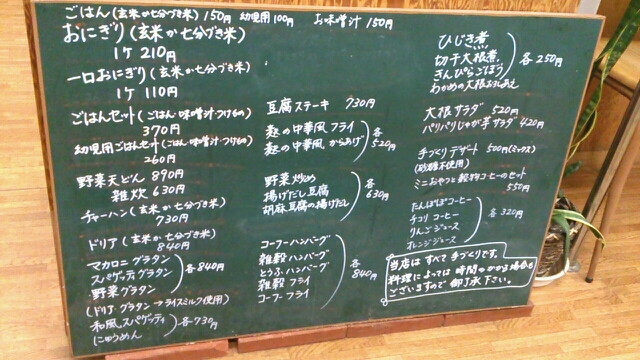 ごはん(玄米か七分づき米)150円 幼児用100円 お味噌汁150円
おにぎり(玄米か七分づき米)
1ケ 210円
一口おにぎり(玄米か七分づき米)
1ケ 110円
ごはんセット(ごはん・味噌汁・つけもの)
370円
幼児用ごはんセット(ごはん・味噌汁・つけもの)
260円
野菜天どん 890円
雑炊 630円
チャーハン(玄米か七分づき米)
730円
ドリア(玄米か七分づき米)
840円
マカロニグラタン
スパゲッティグラタン
野菜グラタン
各840円
(ドリア・グラタン→ライスミルク使用)
和風スパゲッティ
にゅうめん
各730円
豆腐ステーキ 730円
麩の中華風フライ
麩の中華風からあげ
各520円
野菜炒め
揚げだし豆腐
胡麻豆腐の揚げだし
各630円
コーフーハンバーグ
雑穀ハンバーグ
とうふハンバーグ
雑穀フライ
コーフーフライ
各840円
ひじき煮
切干大根煮
きんぴらごぼう
わかめの大根おろしあえ
各250円
大根サラダ 520円
パリパリじゃが芋サラダ 420円
手づくりデザート 500円(ミックス)
(砂糖不使用)
ミニおやつと穀物コーヒーのセット
550円
たんぽぽコーヒー
チコリコーヒー
りんごジュース
オレンジジュース
各320円
当店はすべて手づくりです。
料理によっては時間のかかる場合も
ございますので御了承下さい。